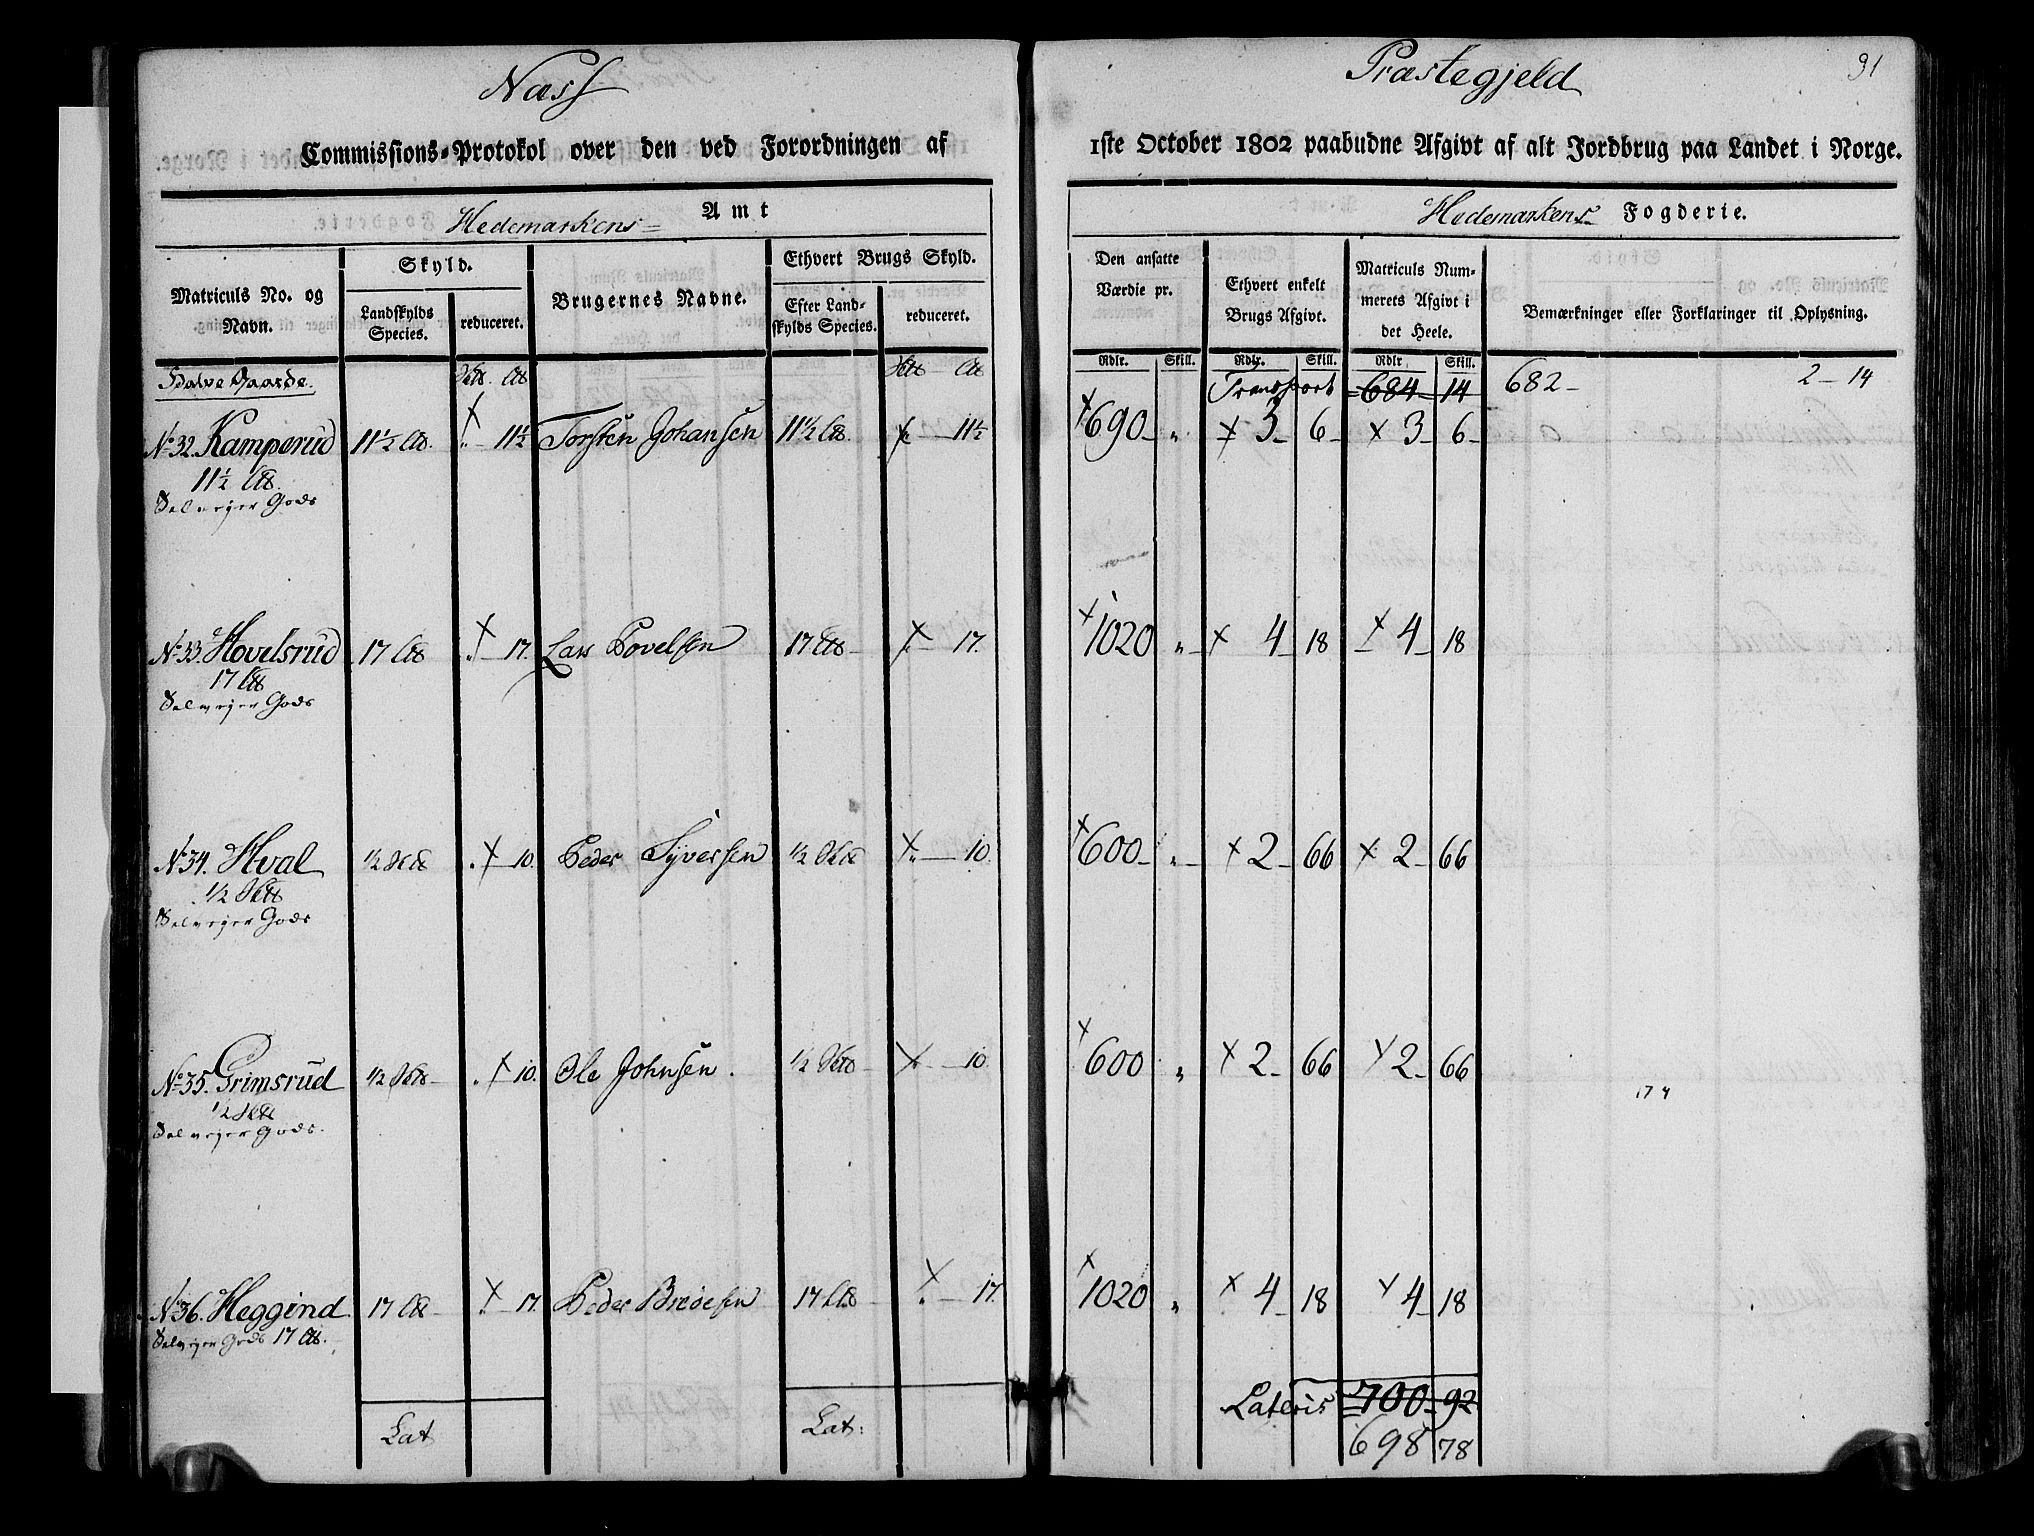 Næss Præstegjeld 31
Commissions-Protokol over den ved Forordningen af 1ste October 1802 paabudne Afgivt af alt Jordbrug paa Landet i Norge.
Hedemarkens Amt Hedemarkens Fogderie.
Matriculs No. og Navn.
Skyld.
Landskylds Species.
reduceret.
Brugernes Navne.
Ethvert Brugs Skyld.
Efter Landskylds Species.
reduceret.
Den ansatte Værdie pr.
Ethvert enkelt Brugs Afgivt.
Matriculs Nummerets Afgivt i det Heele.
Bemærkninger eller Forklaringer til Oplysning.
Rdlr. Skill. Rdlr. Skill. Rdlr Skill.
Halve Gaarde. Transport 684 14 682 - 2 - 14
No 32. Kamperud 11½ 11½ Torsten Johansen 11½ 11½ 690 " 3 6 3 6
11½
Selvejer Gods
No 33. Hovelsrud 17 17. Lars Povelsen 17 17. 1020 " 4 18 4 18
17
Selvejer Gods
No 34. Hval ½ 10. Peder Syversen ½ 10. 600 " 2 66 2 66
½
Selvejer Gods
No 35. Grimsrud ½ 10. Ole Johnsen. ½ 10. 600 " 2 66 2 66
½
Selvejer Gods.
No 36. Heggind 17 17. Peder 17 17. 1020 " 4 18 4 18
Selvejer Gods 17
Lat Lat: Lateris 700 92
698 78